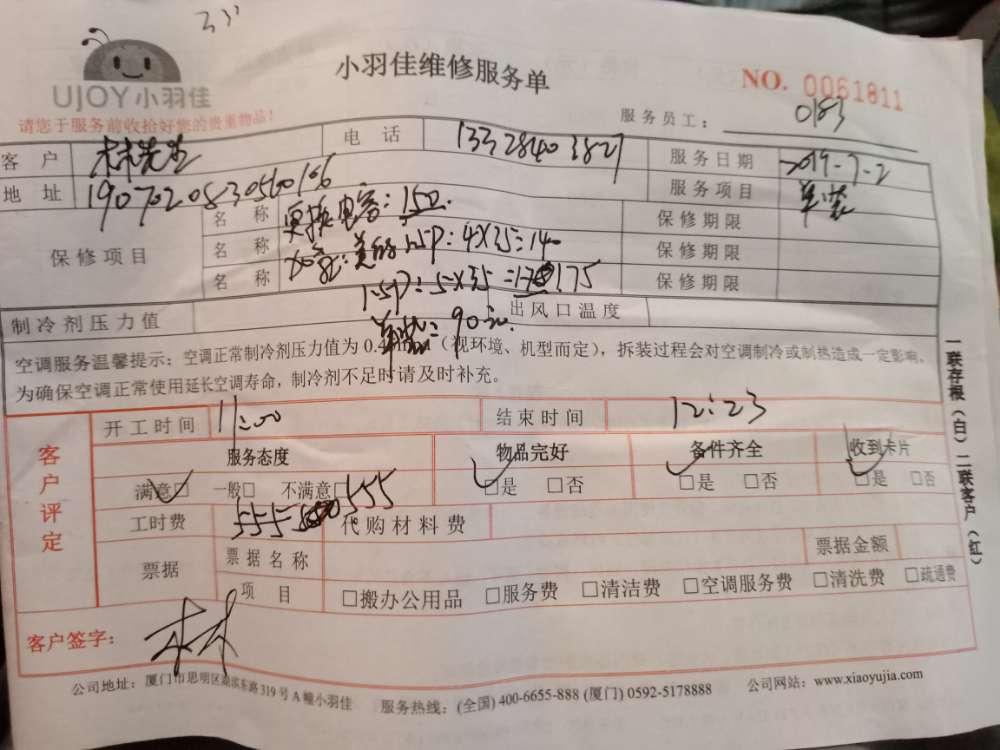 UJOY小羽佳
小羽佳维修服务单
NO. 0061811
请您于服务前收拾好您的贵重物品!
服务员工: 0183
客户 林先生 电话 13328403827 服务日期 2019-7-2
地址 190702083056016 服务项目 单装
保修项目 名称 更换电容:150. 保修期限
名称 1.5P:4×35=140 保修期限
名称 1.5P:5×35=175 保修期限
制冷剂压力值 出风口温度
单装:90元.
空调服务温馨提示:空调正常制冷剂压力值为 (视环境、机型而定),拆装过程会对空调制冷或制热造成一定影响,
为确保空调正常使用延长空调寿命,制冷剂不足时请及时补充。
客户评定
开工时间 11:00 结束时间 12:23
服务态度 物品完好 备件齐全 收到卡片
满意□ 一般□ 不满意□ □是 □否 □是 □否 □是 □否
工时费 555 555 代购材料费
票据 票据名称 票据金额
项目 □搬办公用品 □服务费 □清洁费 □空调服务费 □清洗费 □疏通费
客户签字: 林
公司地址:厦门市思明区湖滨东路319号A幢小羽佳 服务热线:(全国) 400-6655-888 (厦门) 0592-5178888 公司网站:www.xiaoyujia.com
一联存根(白) 二联客户(红)